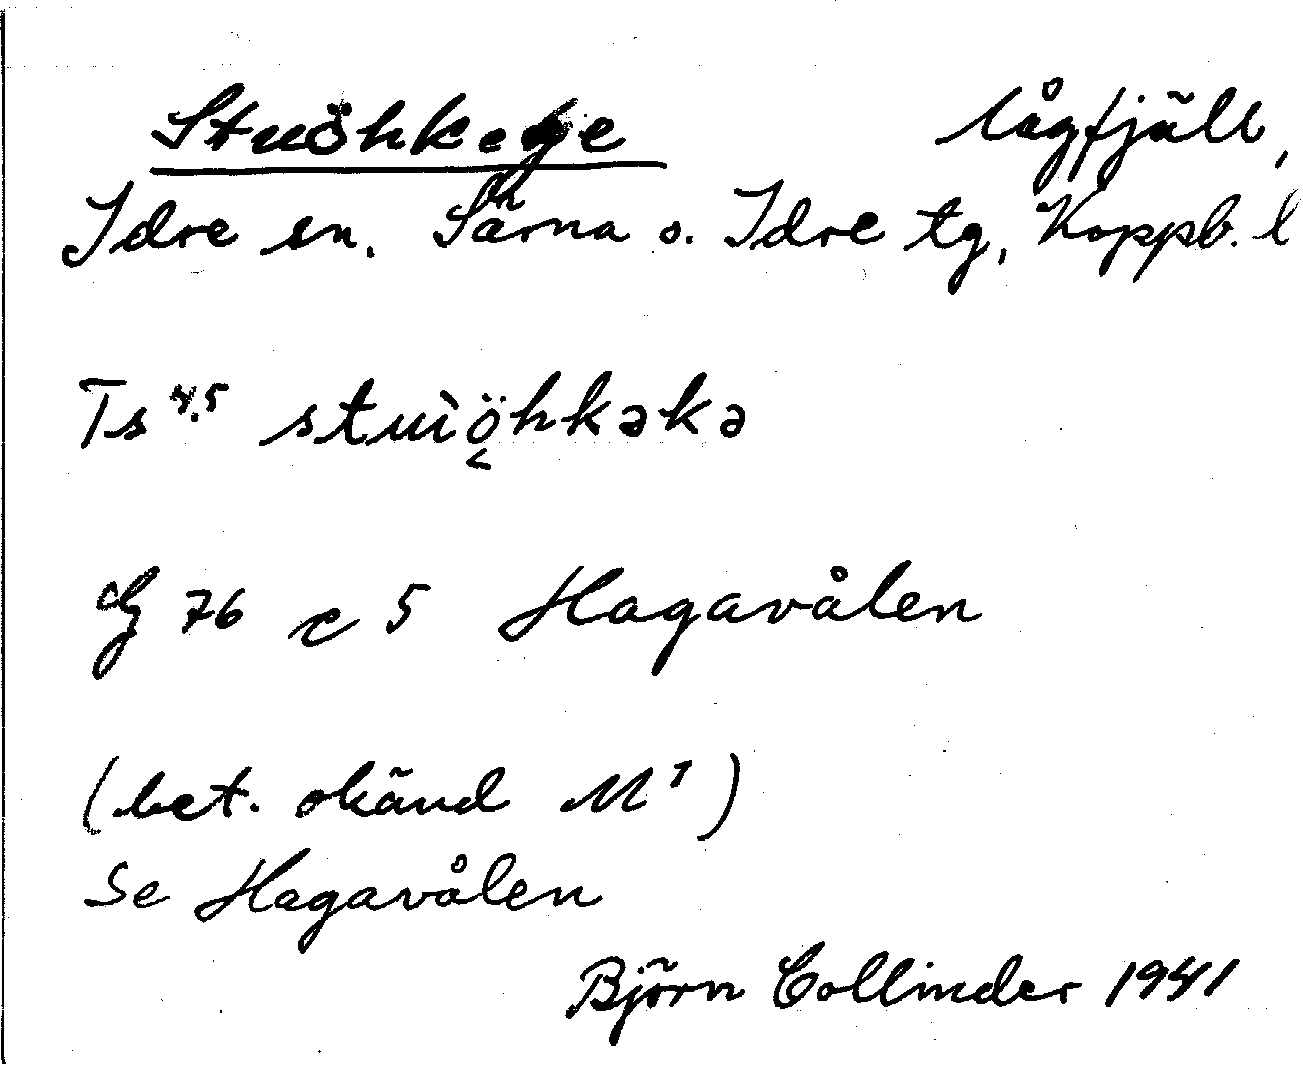 Stuöhkege lågfjäll,
Idre sn. Särna o. Idre tg, Koppb. l
Ts 4.5 stuì̀öhkəkə
76 c 5 Hagavålen
(bet. okänd M 1)
Se Hagavålen
Björn Collinder 1941